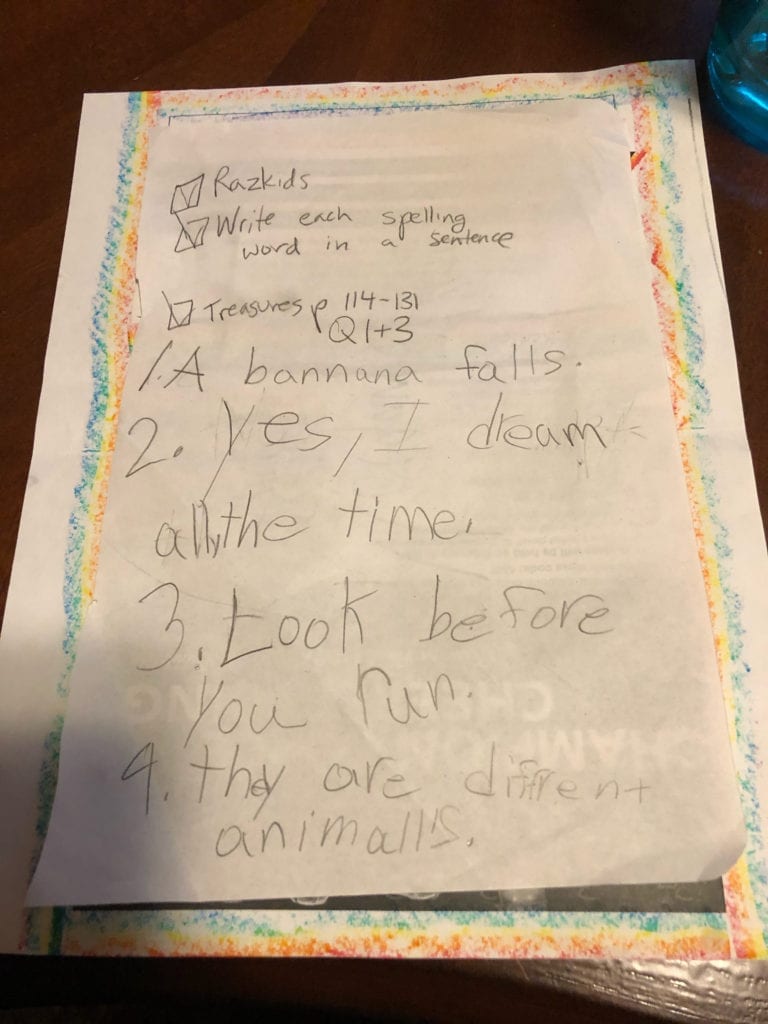 Razkids
Write each spelling
word in a sentence
Treasures p 114-131
Q 1+3
1. A bannana falls.
2. Yes, I dream
all the time.
3. Look before
you run.
4. they are difrent
animalls.